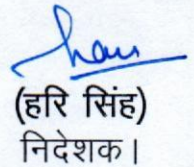 (हरि सिंह)
निदेशक।